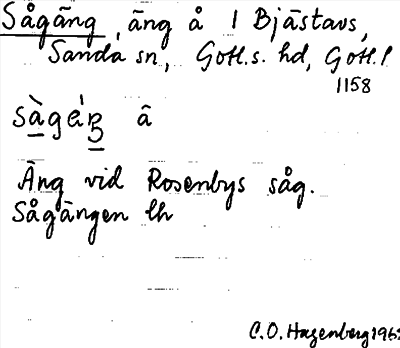 Sågäng, äng å 1 Bjästavs,
Sanda sn, Gotl.s. hd, Gotl. l
1158
â
Äng vid Rosenbys såg.
Sågängen lh
C.O. Hagenberg 196